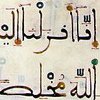 إنا أنزلنا إليك
الله مخلصا